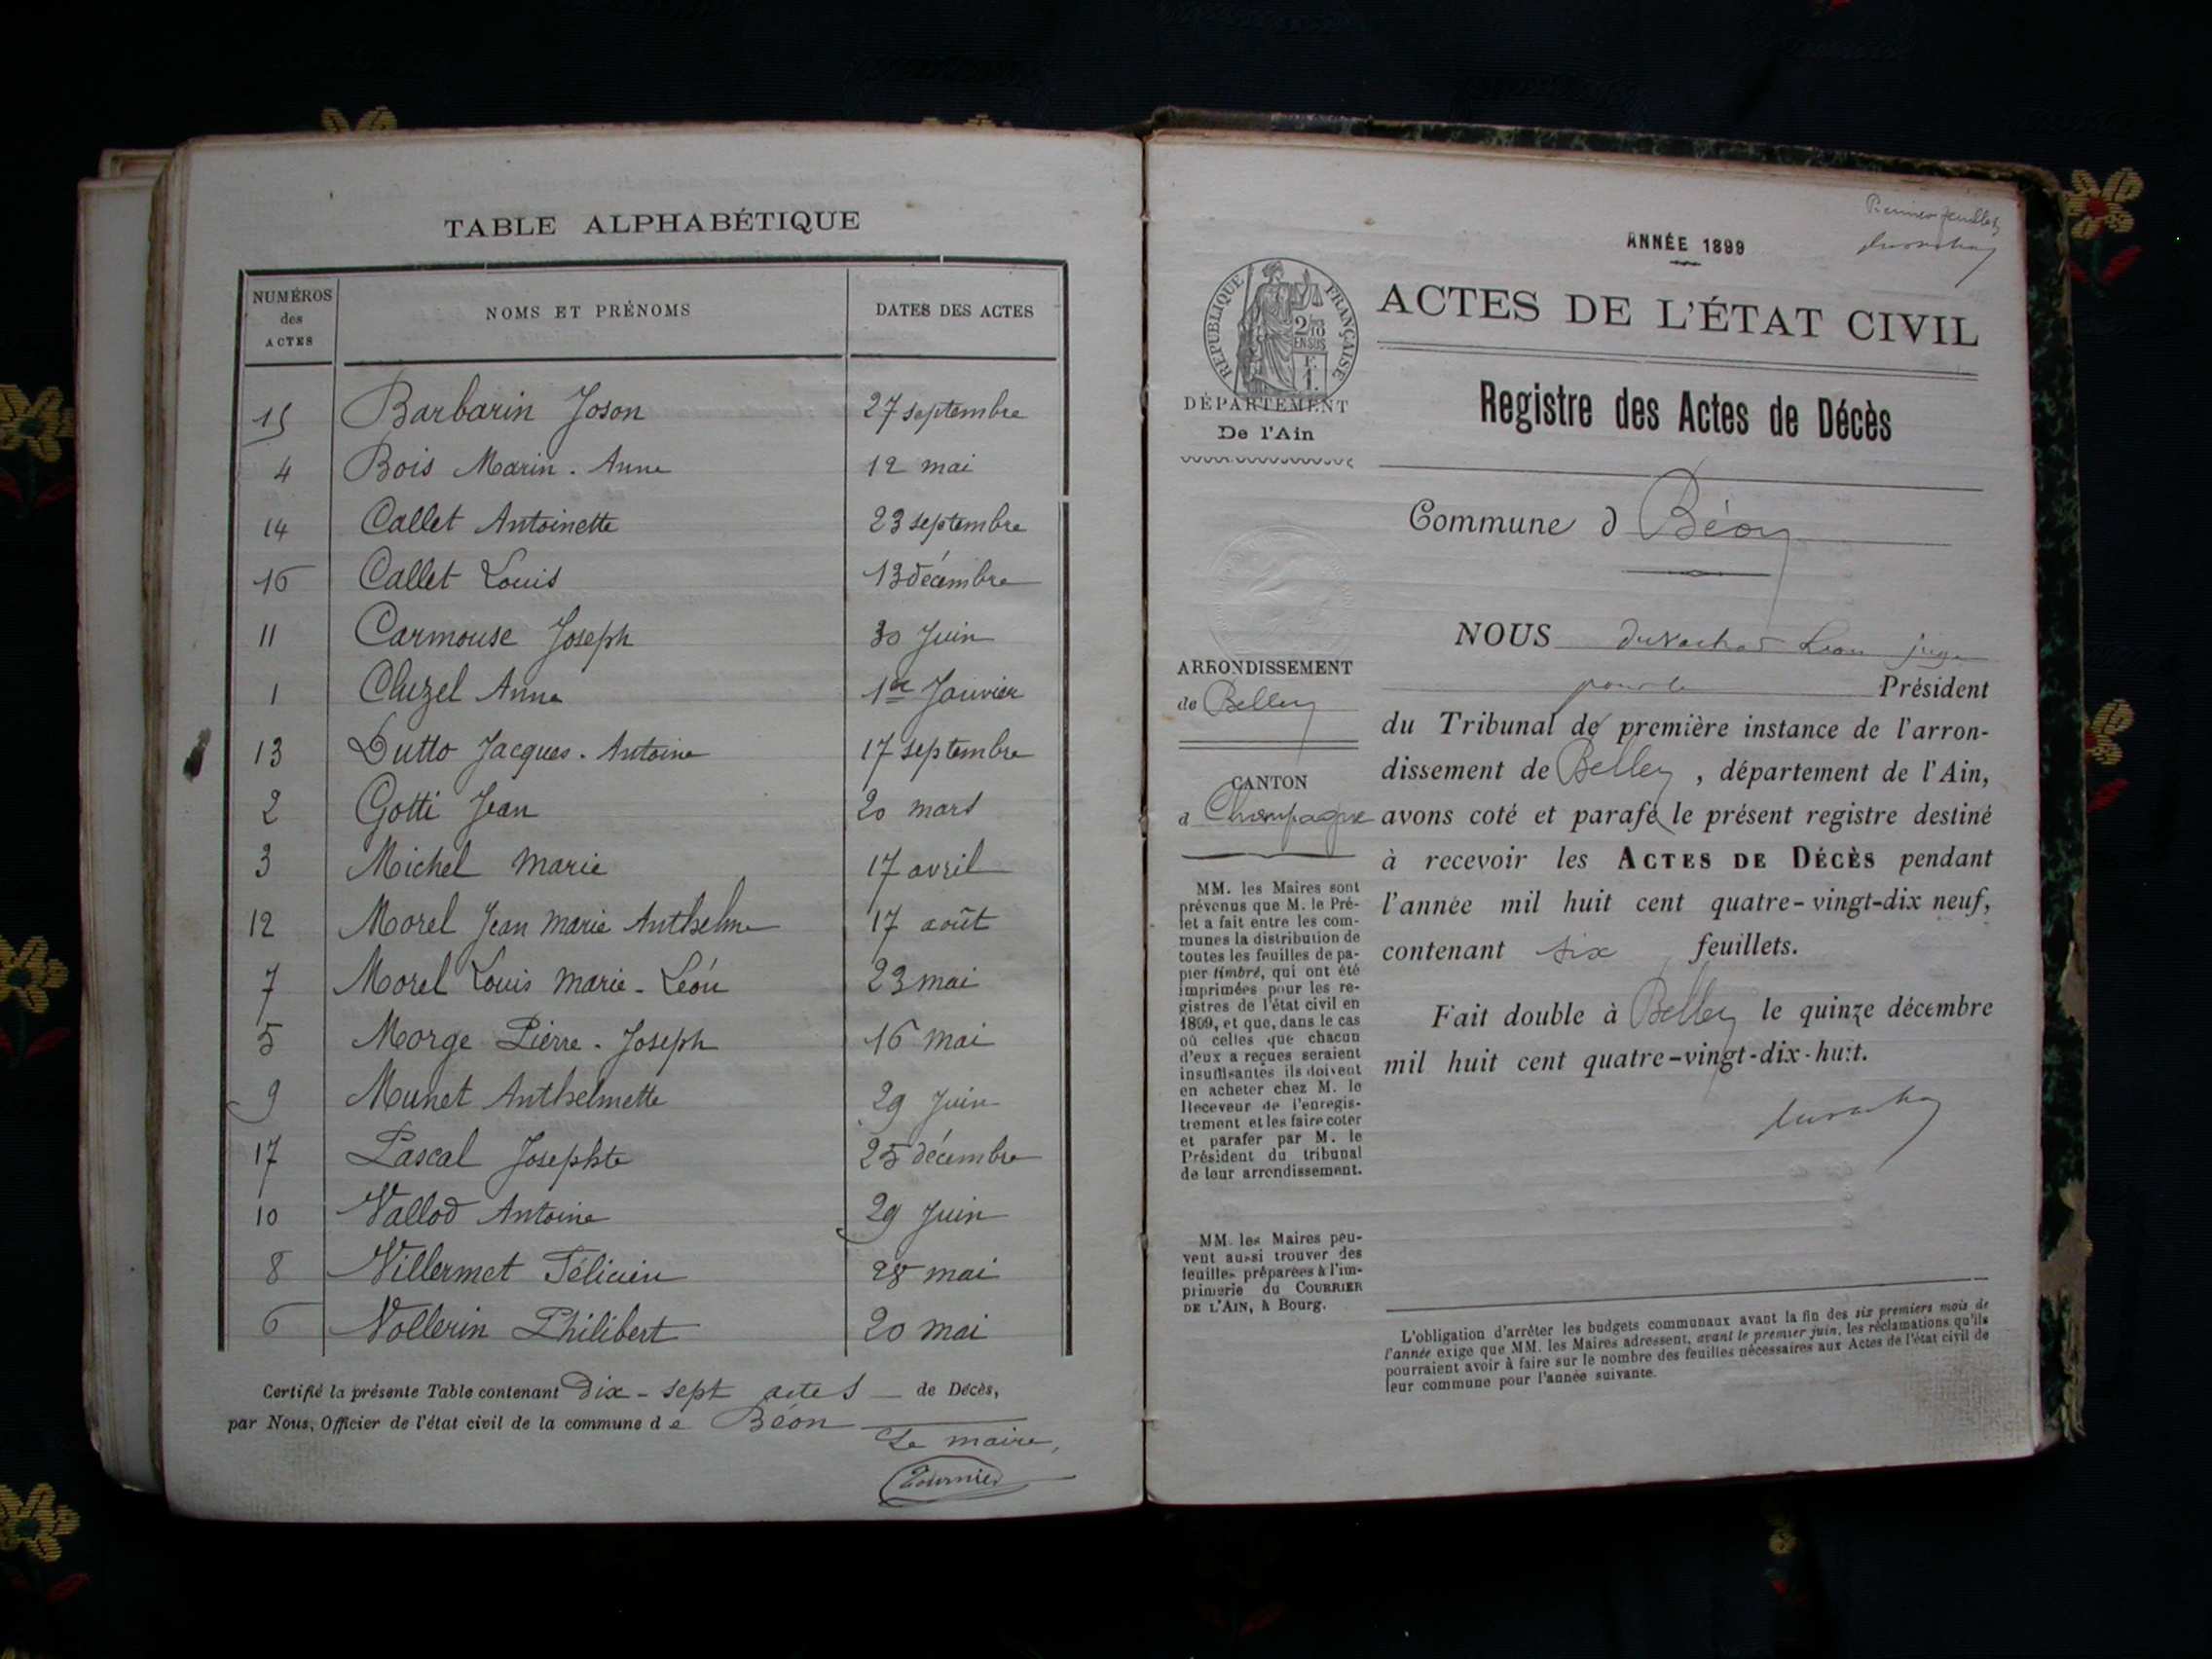 TABLE ALPHABÉTIQUE
NUMÉROS des ACTES
NOMS ET PRÉNOMS
DATES DES ACTES
15 Barbarin Joson 27 septembre
4 Bois Marin - Anne 12 mai
14 Callet Antoinette 23 septembre
16 Callet Louis 13 décembre
11 Carmouse Joseph 30 Juin
1 Cluzel Anne 1er Janvier
13 Dutto Jacques - Antoine 17 septembre
2 Gotti Jean 20 mars
3 Michel Marie 17 avril
12 Morel Jean Marie Anthelme 17 août
7 Morel Louis Marie - Léon 23 mai
5 Morge Pierre - Joseph 16 mai
9 Munet Anthelmette 29 Juin
17 Pascal Josephte 25 décembre
10 Vallod Antoine 29 Juin
8 Villermet Félicien 28 mai
6 Vollerin Philibert 20 mai
Certifié la présente Table contenant Dix - sept actes de Décès,
par Nous, Officier de l'état civil de la commune de Béon
Le maire,
ANNÉE 1899
Premier feuillet
RÉPUBLIQUE FRANÇAISE
ACTES DE L'ÉTAT CIVIL
DÉPARTEMENT
De l'Ain
Registre des Actes de Décès
Commune d Béon
ARRONDISSEMENT
de Belley
CANTON
d Champagne
MM. les Maires sont
prévenus que M. le Pré-
fet a fait entre les com-
munes la distribution de
toutes les feuilles de pa-
pier timbré, qui ont été
imprimées pour les re-
gistres de l'état civil en
1899, et que, dans le cas
où celles que chacun
d'eux a reçues seraient
insuffisantes ils doivent
en acheter chez M. le
Receveur de l'enregis-
trement et les faire coter
et parafer par M. le
Président du tribunal
de leur arrondissement.
MM. les Maires peu-
vent aussi trouver des
feuilles préparées à l'im-
primerie du COURRIER
DE L'AIN, à Bourg.
NOUS Léon juge
pour le Président
du Tribunal de première instance de l'arron-
dissement de Belley, département de l'Ain,
avons coté et parafé le présent registre destiné
à recevoir les ACTES DE DÉCÈS pendant
l'année mil huit cent quatre-vingt-dix neuf,
contenant six feuillets.
Fait double à Belley le quinze décembre
mil huit cent quatre-vingt-dix-huit.
L'obligation d'arrêter les budgets communaux avant la fin des six premiers mois de
l'année exige que MM. les Maires adressent, avant le premier juin, les réclamations qu'ils
pourraient avoir à faire sur le nombre des feuilles nécessaires aux Actes de l'état civil de
leur commune pour l'année suivante.